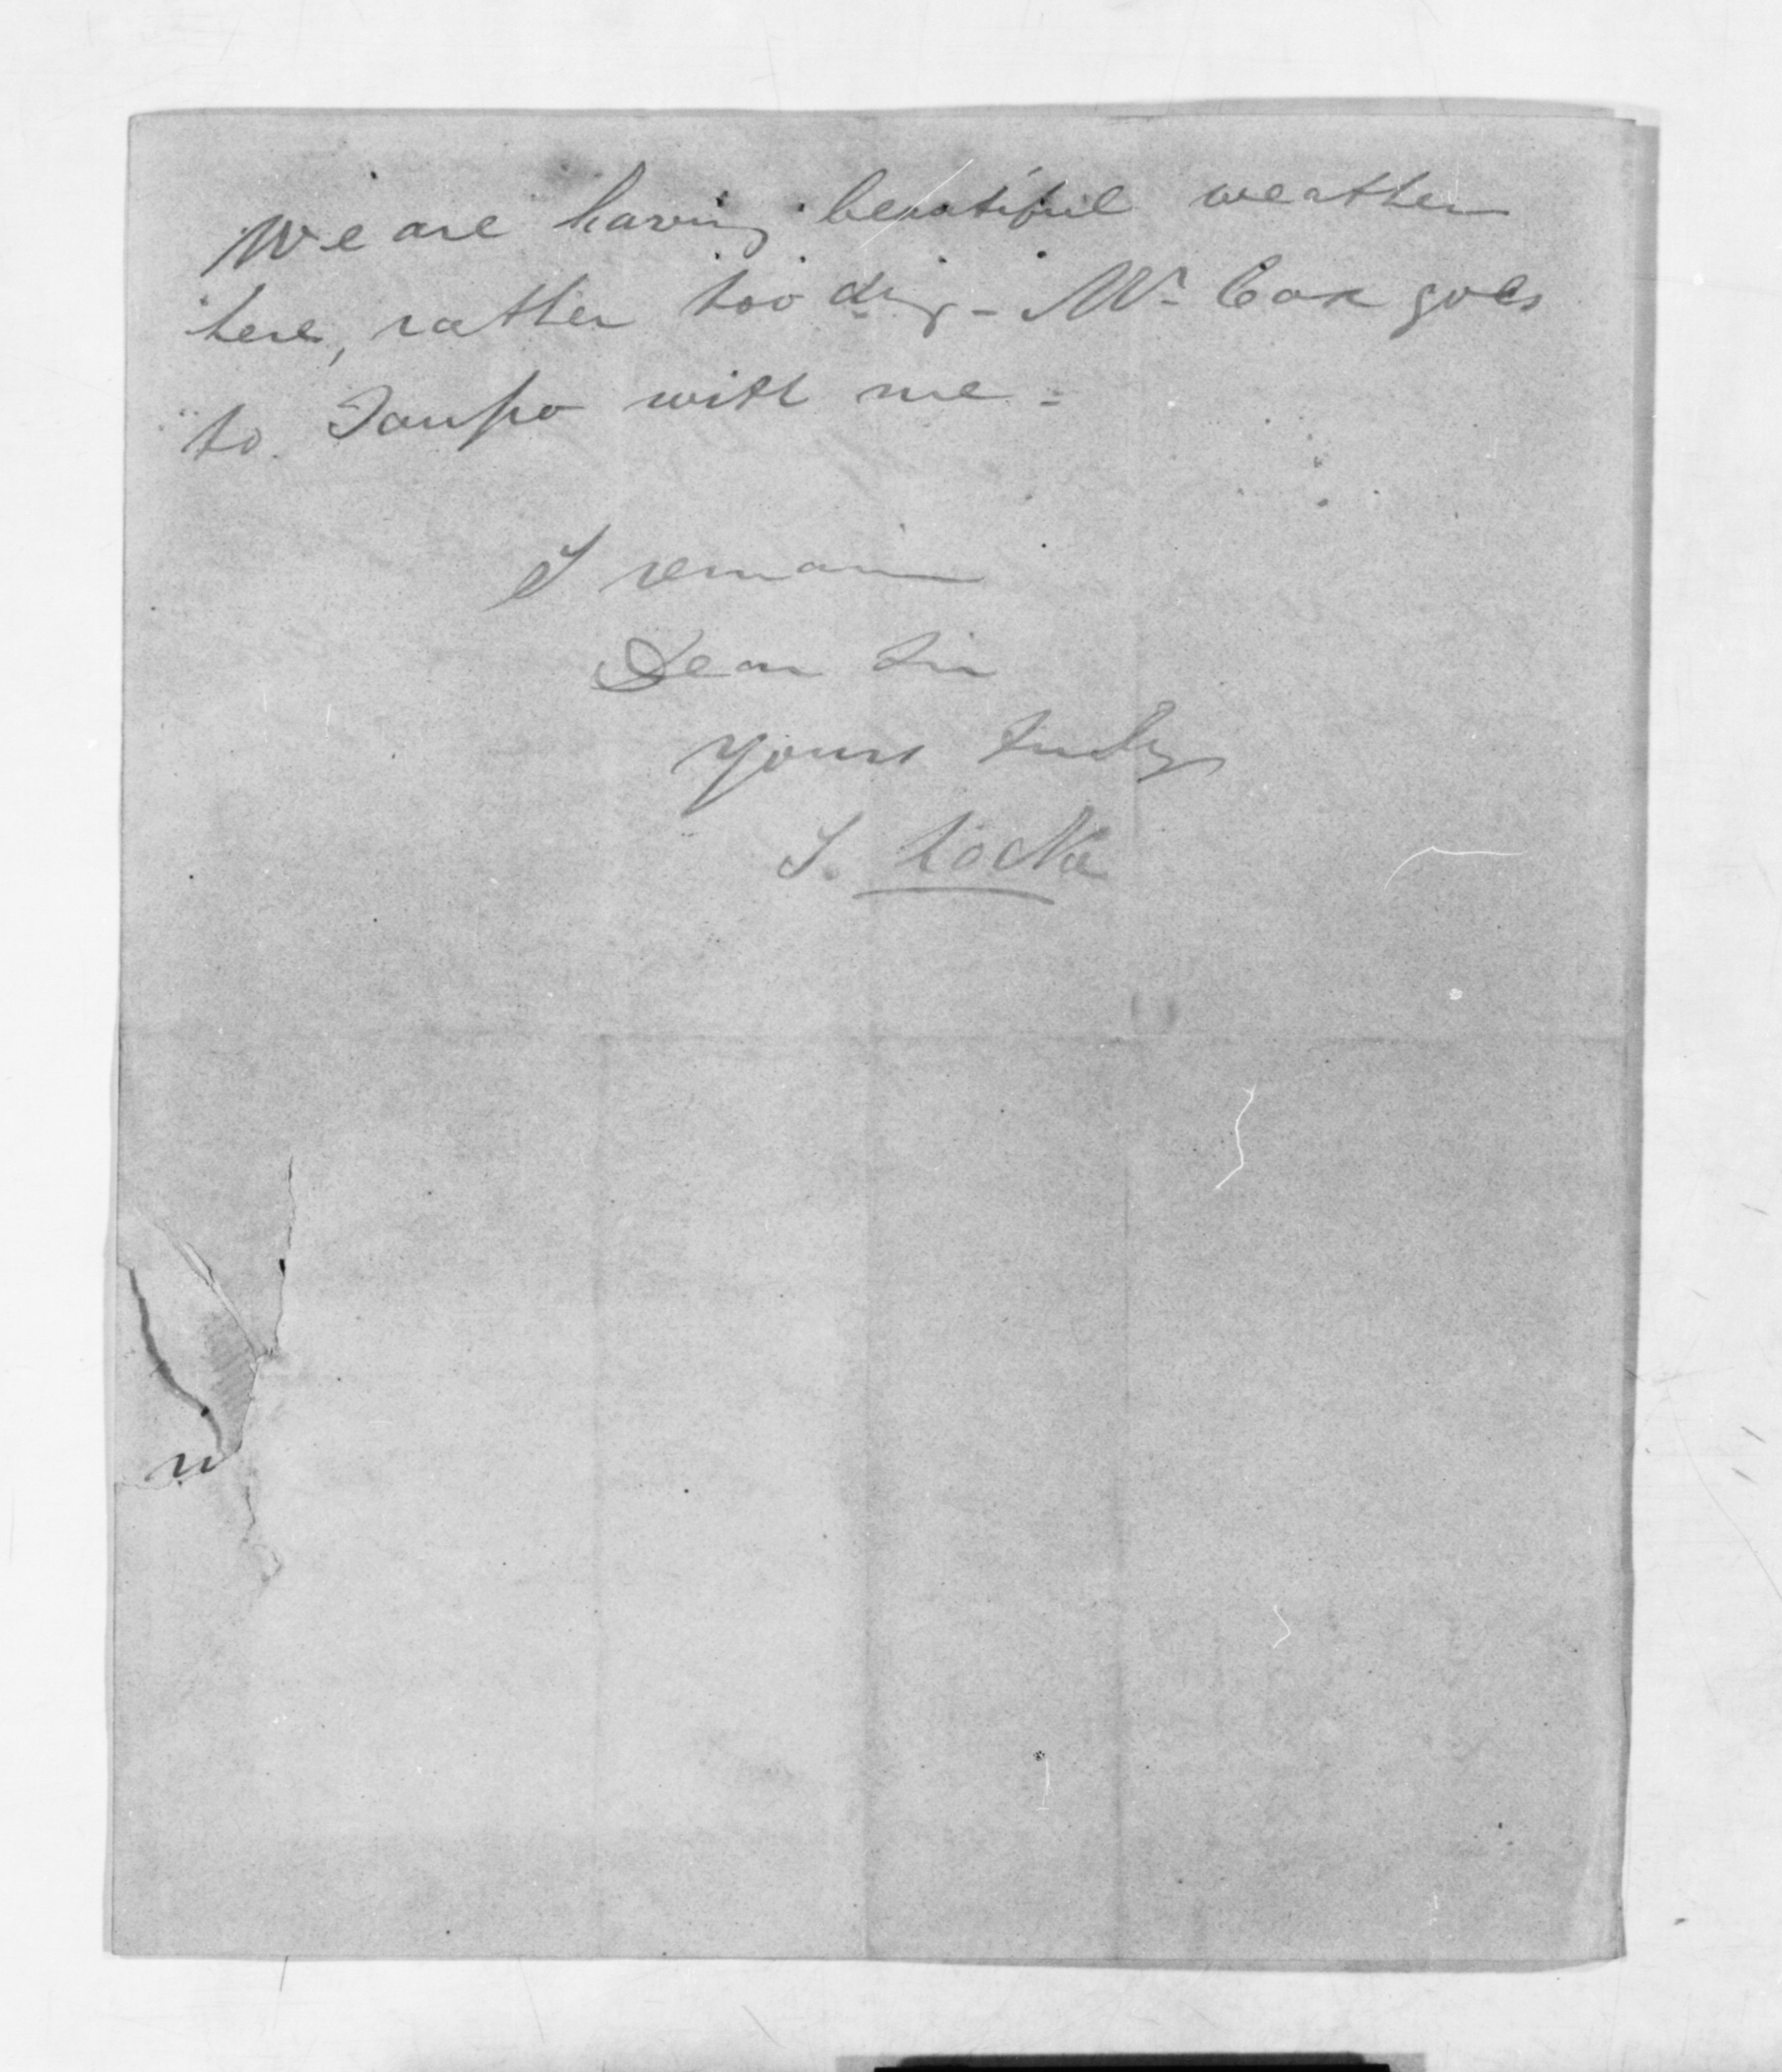 We are having beautiful weather
here, rather too dry - Mr. Cox goes
to Taupo with me -
I remain
Dear Sir
Yours truly
S. Locke